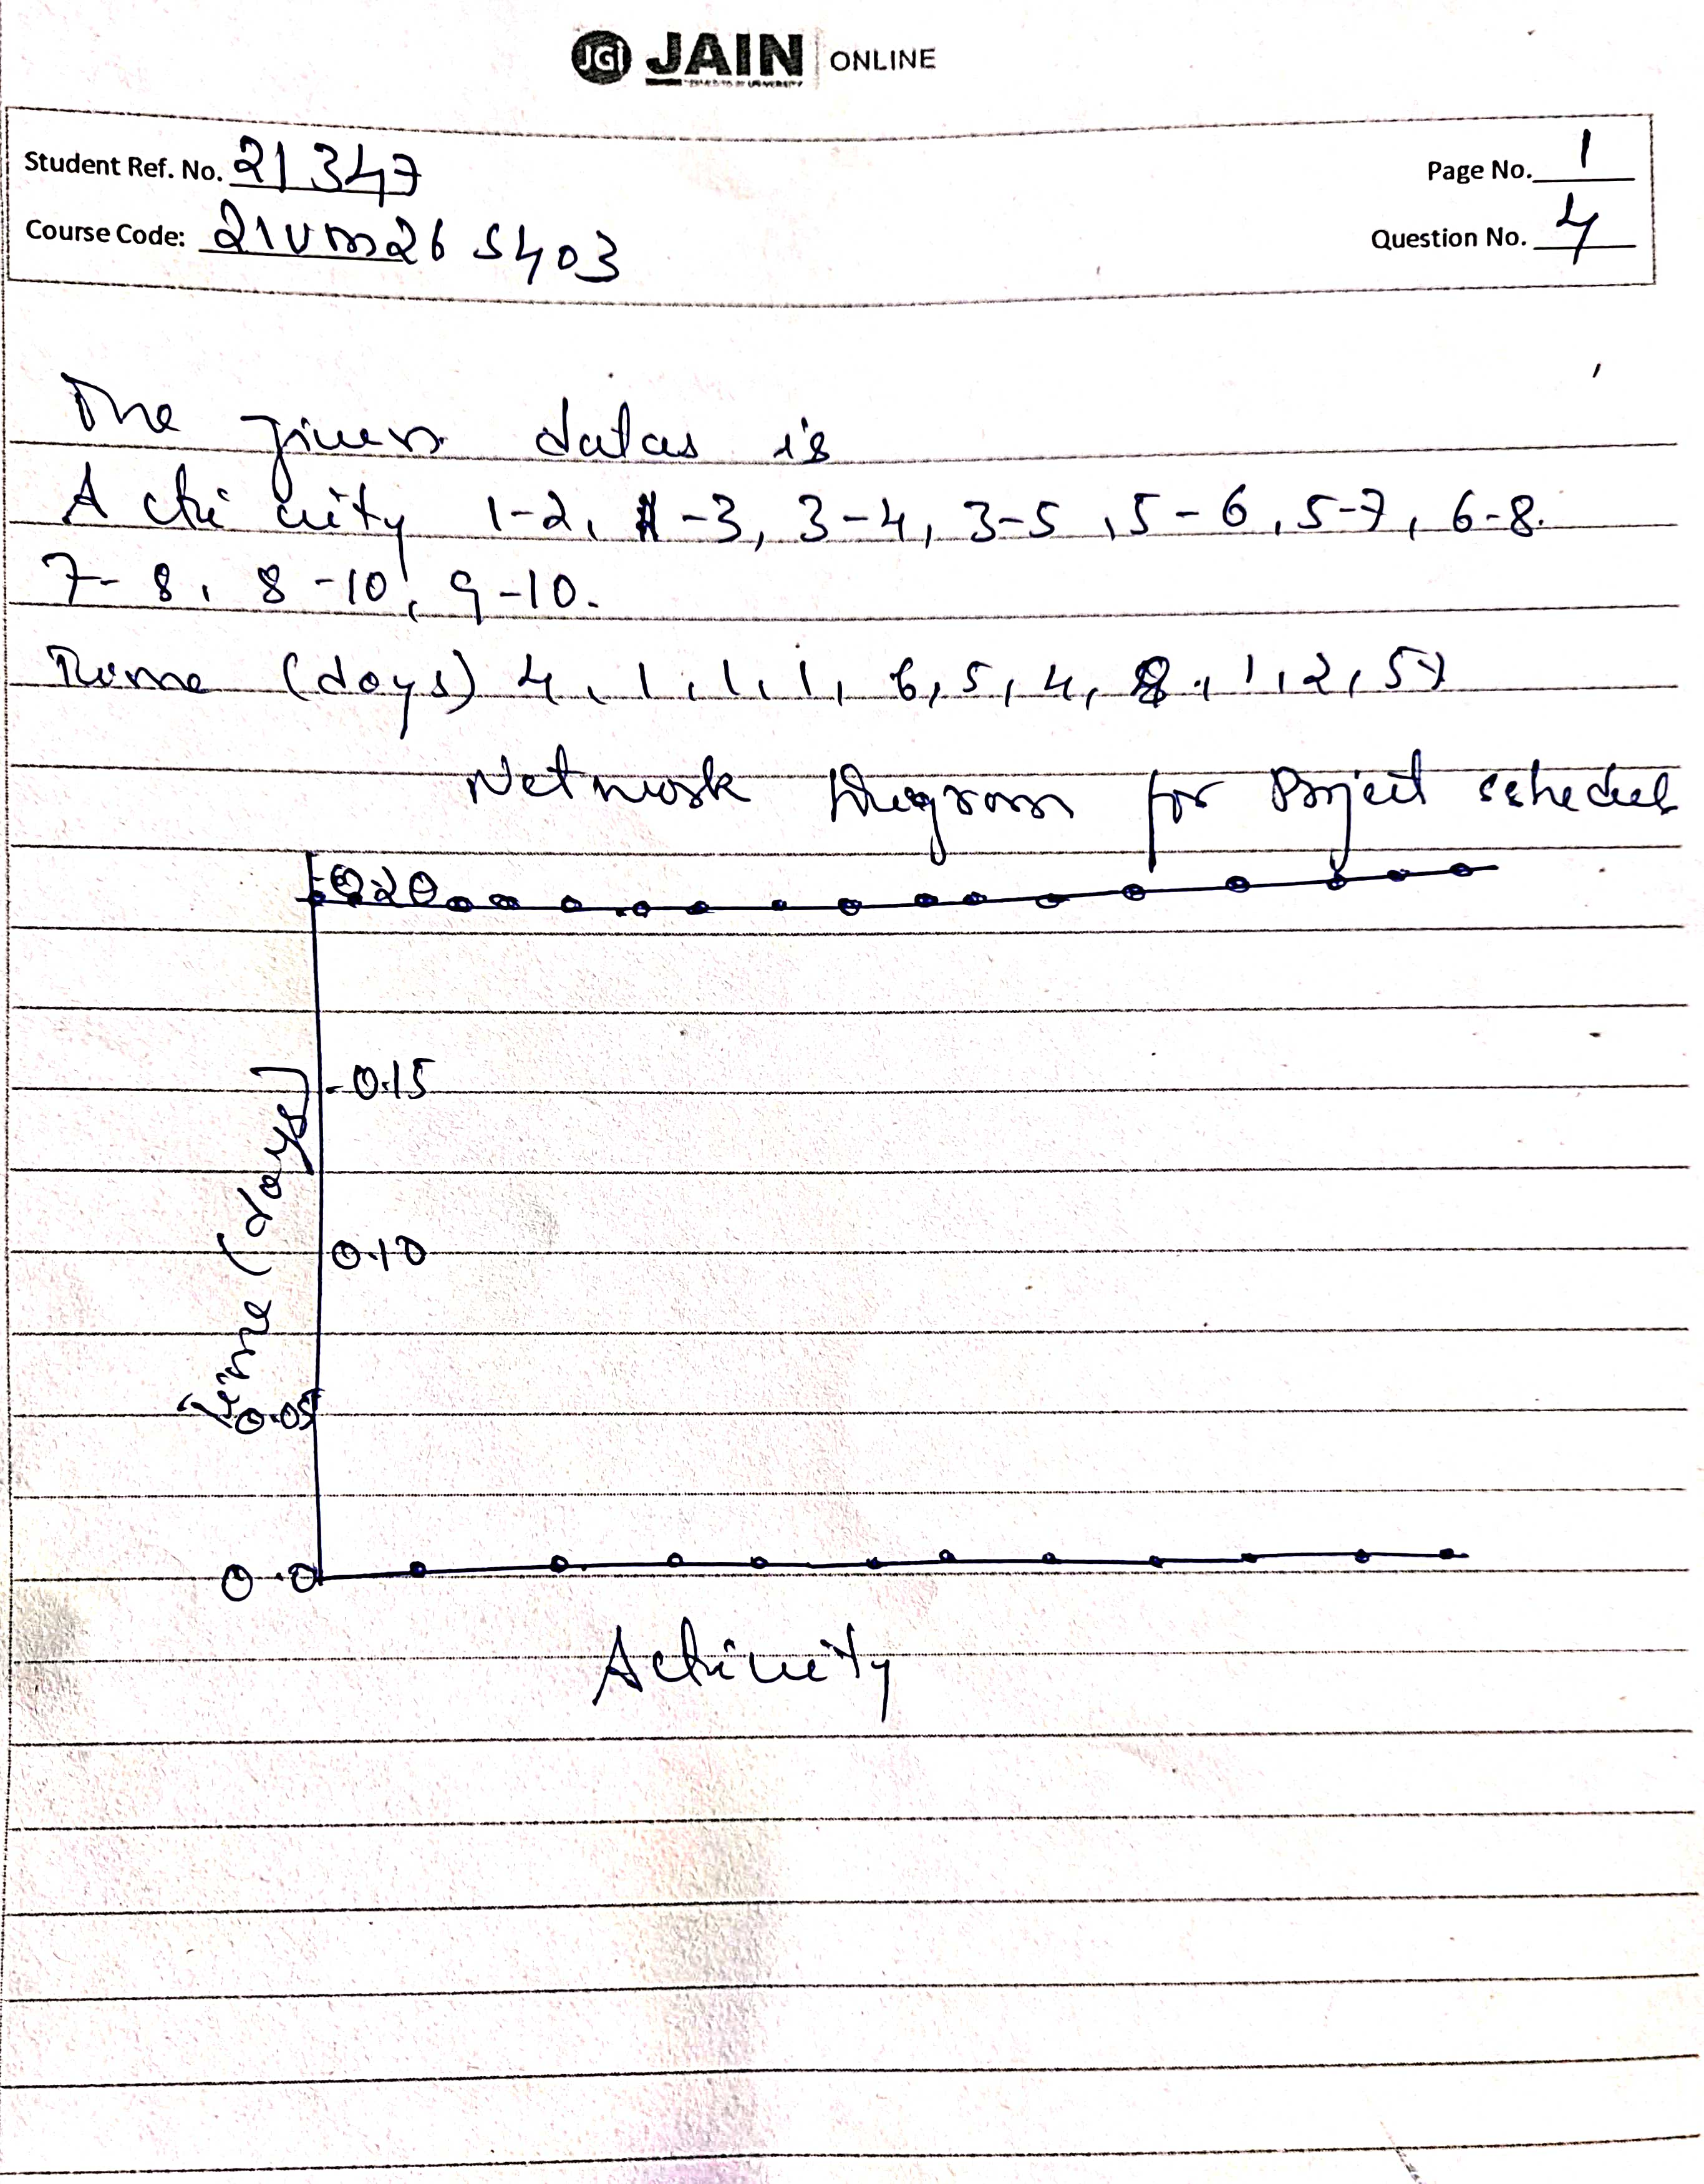 JGI JAIN ONLINE
Student Ref. No. 21347
Page No. 1
Course Code: 21VM26S403
Question No. 4
The given datas is
Activity 1-2, 1-3, 3-4, 3-5, 5-6, 5-7, 6-8.
7-8, 8-10, 9-10.
Time (days) 4, 1, 1, 1, 6, 5, 4, 8, 1, 2, 5
Network Diagram for Project schedul
0.20
0.15
0.10
0.05
0.0
Time (days)
Activity